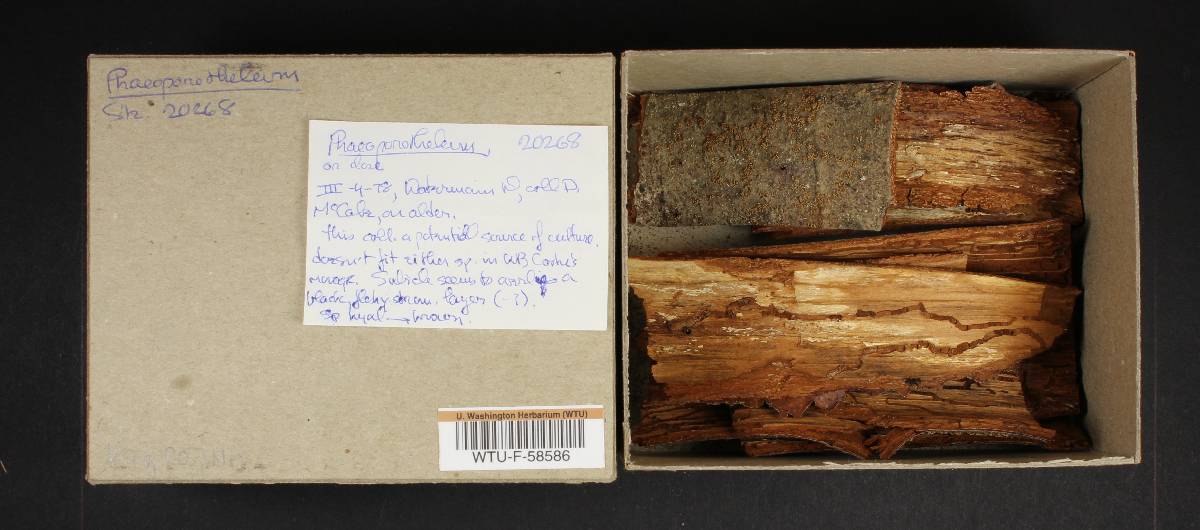 Phaeoporotheleum
Stz. 20268
Phaeoporotheleum, 20268
or close
III-4-78, Watermain D, coll D.
McCabe, on alder.
This coll. a potential source of culture.
doesn't fit either sp. in WB Cooke's
monogr. Subicle seems to overlie a
black, flaky strom. layer (-?).
Sp hyal → brown.
U. Washington Herbarium (WTU)
WTU-F-58586